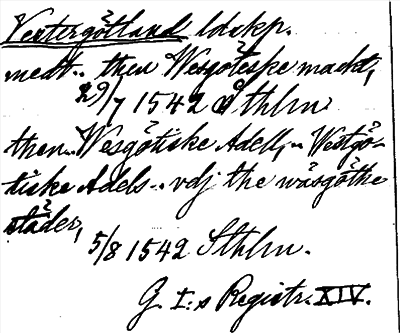 Vestergötland ldskp.
medt.. then Wesgöteske macht,
29/7 1542 Sthlm
then.. Wesgötiske Adell, .. Westgö-
tiske Adels .. vdj the wäsgöthe
städer,
5/8 1542 Sthlm.
G. I:s Registr. XIV.